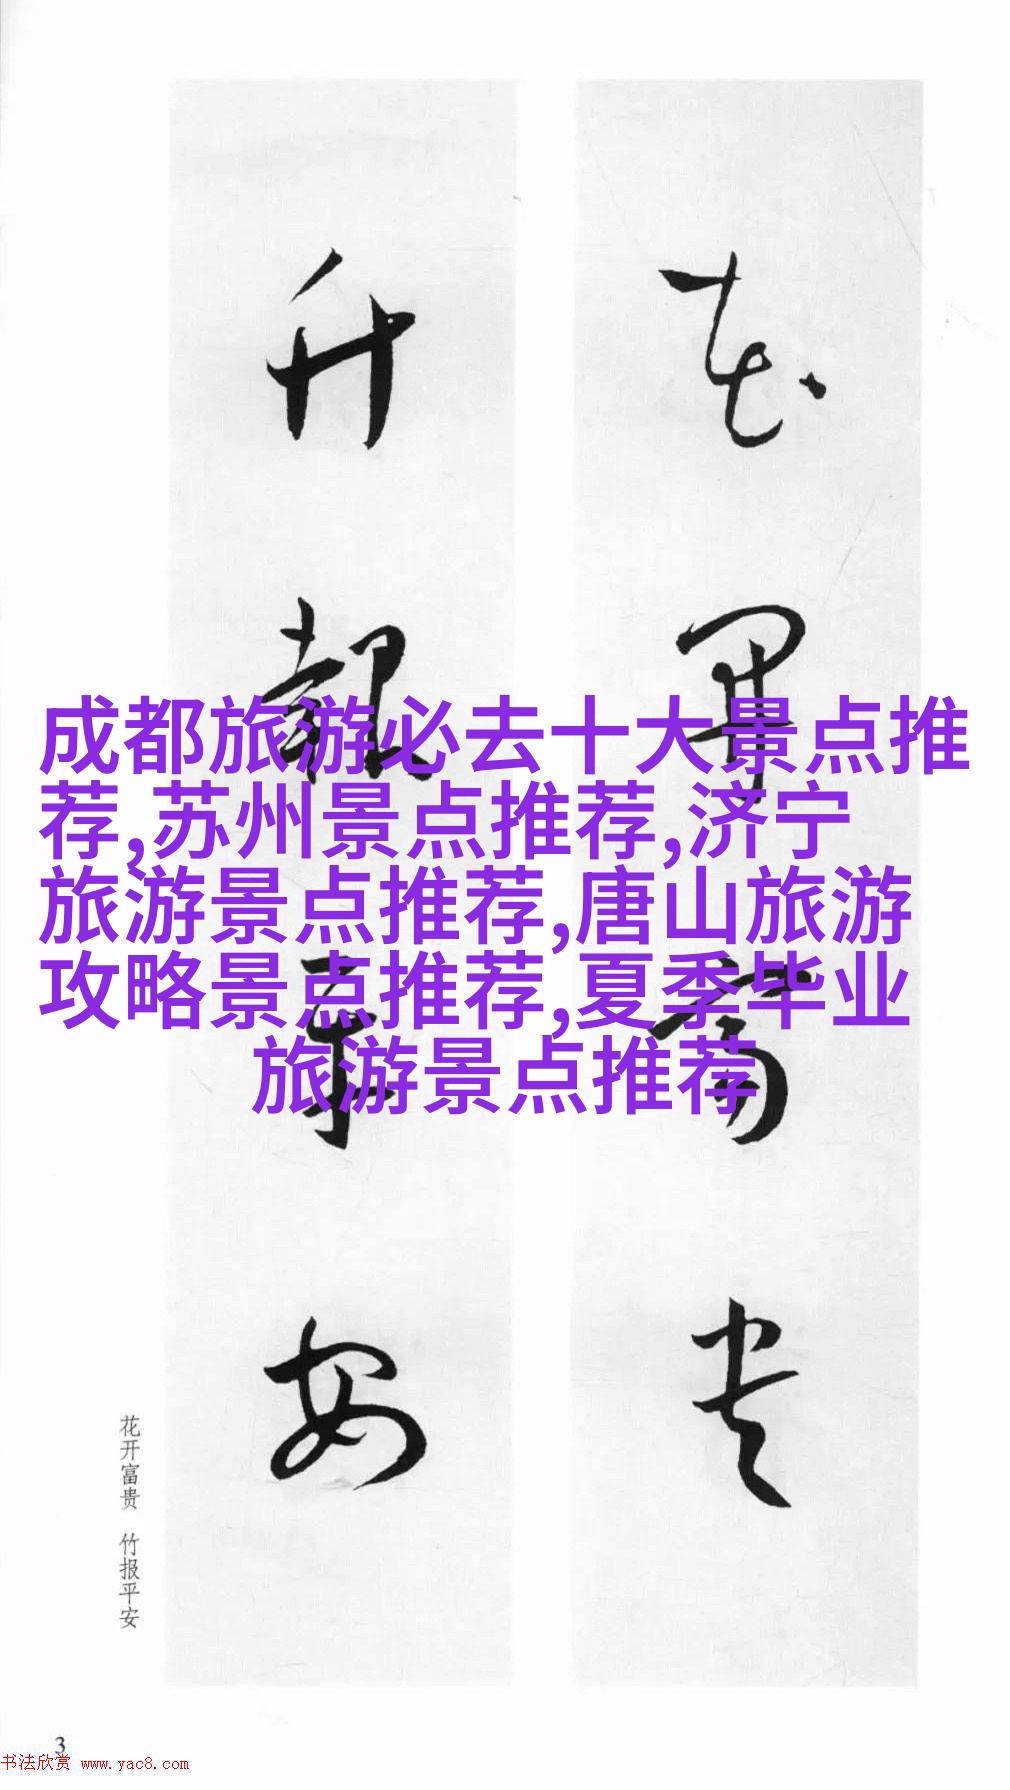 花开富贵
竹报平安
成都旅游必去十大景点推
荐,苏州景点推荐,济宁
旅游景点推荐,唐山旅游
攻略景点推荐,夏季毕业
旅游景点推荐
花开富贵 竹报平安
3
书法欣赏 www.yac8.com